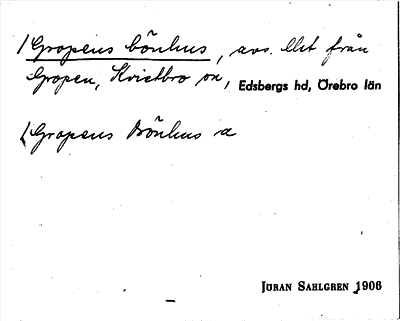 /Gropens bönhus, avs. llet från
Gropen, Kvistbro sn, Edsbergs hd, Örebro län
/Gropens Bönhus a
JÖRAN SAHLGREN 1906